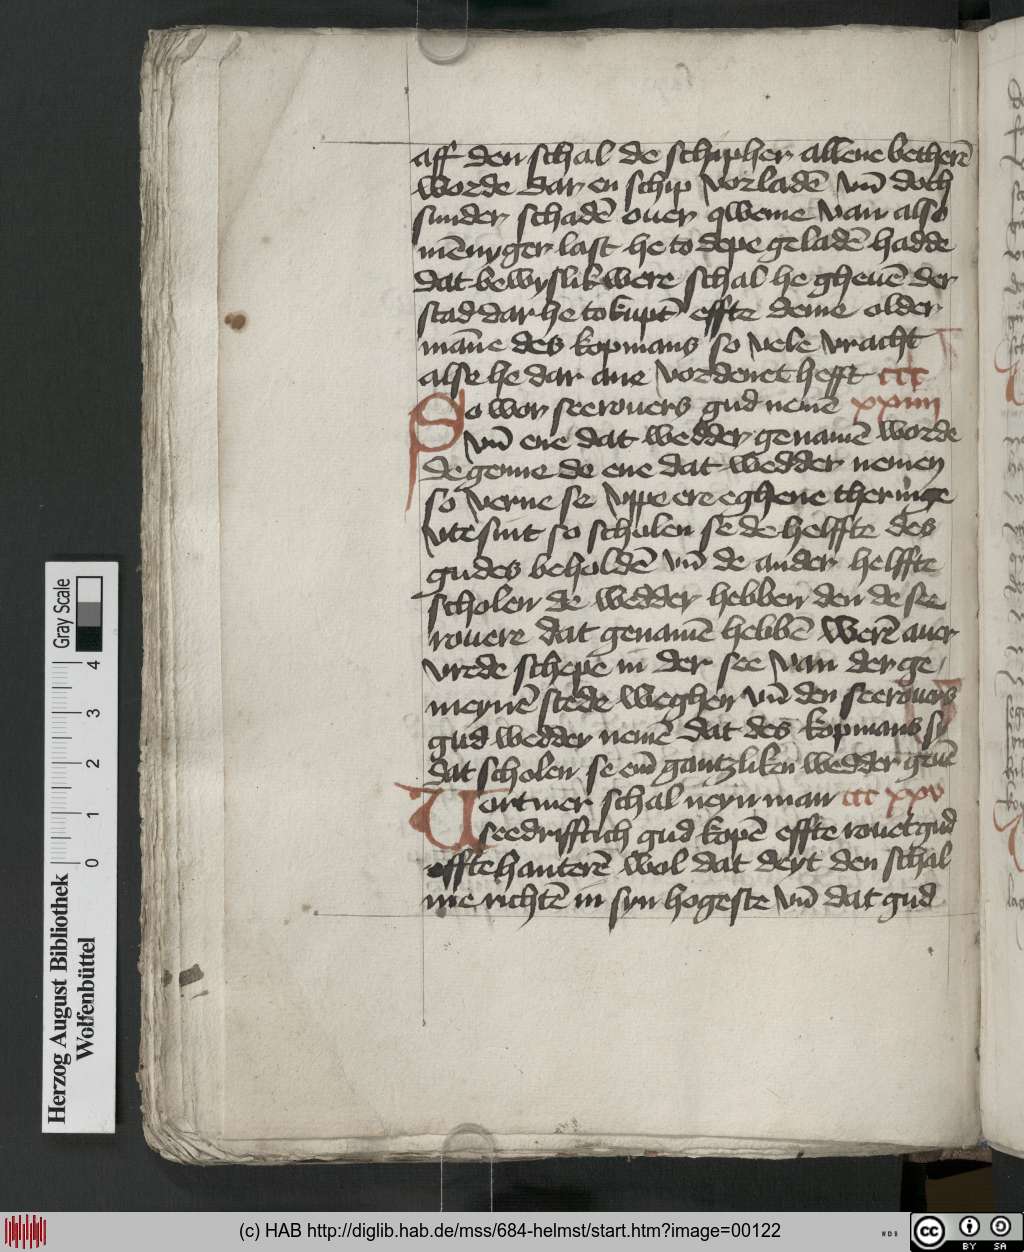 aff den schal de schipher allene betherē
worde dar en schip vorladē vn̄ doch
sunder schadē ouer qweme van also
mēnyger last he to depe geladē hadde
dat bewyslik were schal he gheuē der
stad dar he to kupt̄ effte deme older
māne des kopmans so vele vracht
alse he dar ane vordenet hefft ccc
So wor seerouers gud nemē xxiiii
vn̄ ene dat wedder genamē worde
de genne de ene dat wedder nemen
so verne se vppe ere eghene theringe
vte sint so scholen se de helffte des
gudes beholdē vn̄ de ander helffte
scholen de wedder hebben den de see
rouere dat genamē hebbē werē auer
vrede schepe in der see van der ge
meynē stede weghen vn̄ den seerouers
gud wedder nemē dat des kopmans sy
dat scholen se em̄ gantzlikn̄ wedder geuē
Vortmer schal neyn man ccc xxv
seedrifftich gud kopē effte rouet gud
effte hanterē wol dat deyt den schal
me richtē in syn hogeste vn̄ dat gud
Gray Scale
4
3
2
1
0
Herzog August Bibliothek
Wolfenbüttel
(c) HAB http://diglib.hab.de/mss/684-helmst/start.htm?image=00122
WDB
cc
BY SA